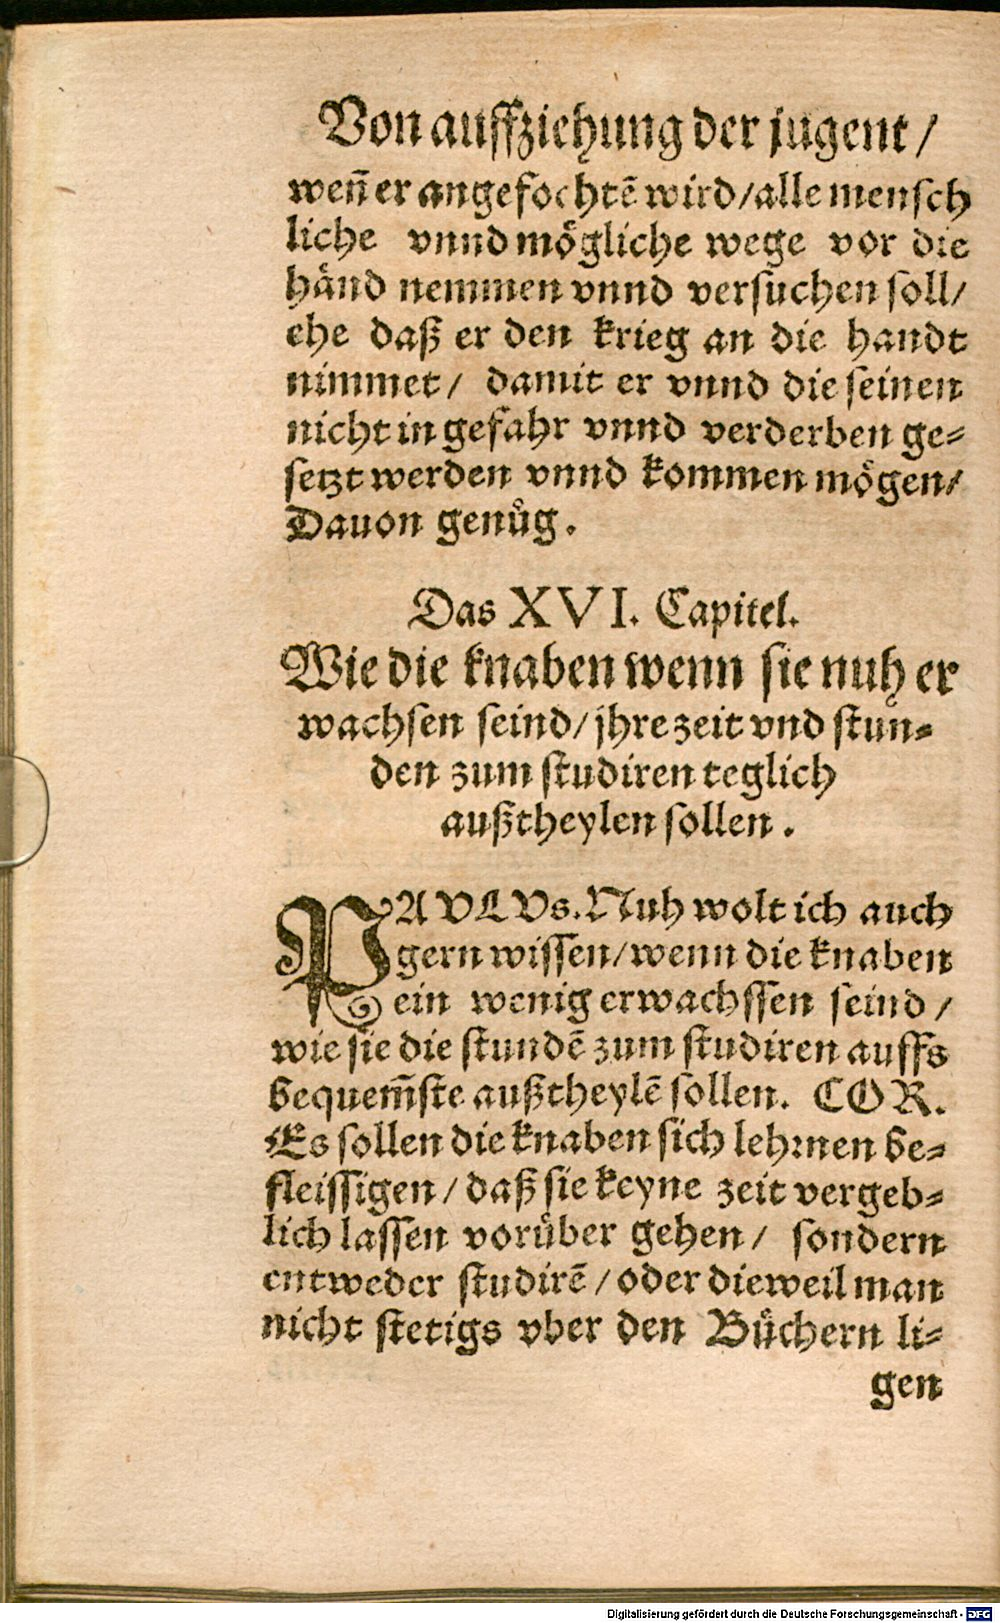 Von auffziehung der jugent /
weñ er angefochtẽ wird/alle mensch
liche vnnd mögliche wege vor die
händ nemmen vnnd versuchen soll/
ehe daß er den krieg an die handt
nimmet/ damit er vnnd die seinen
nicht in gefahr vnnd verderben ge-
setzt werden vnnd kommen mögen/
Dauon genůg.
Das XVI. Capitel.
Wie die knaben wenn sie nuh er
wachsen seind/jhre zeit vnd stun-
den zum studiren teglich
außtheylen sollen.
PAVLVs. Nuh wolt ich auch
gern wissen/wenn die knaben
ein wenig erwachssen seind /
wie sie die stundẽ zum studiren auffs
bequem̃ste außtheylẽ sollen. COR.
Es sollen die knaben sich lehrnen be-
fleissigen/daß sie keyne zeit vergeb-
lich lassen vorüber gehen/ sondern
entweder studirẽ/oder dieweil man
nicht stetigs vber den Büchern li-
gen
Digitalisierung gefördert durch die Deutsche Forschungsgemeinschaft - DFG